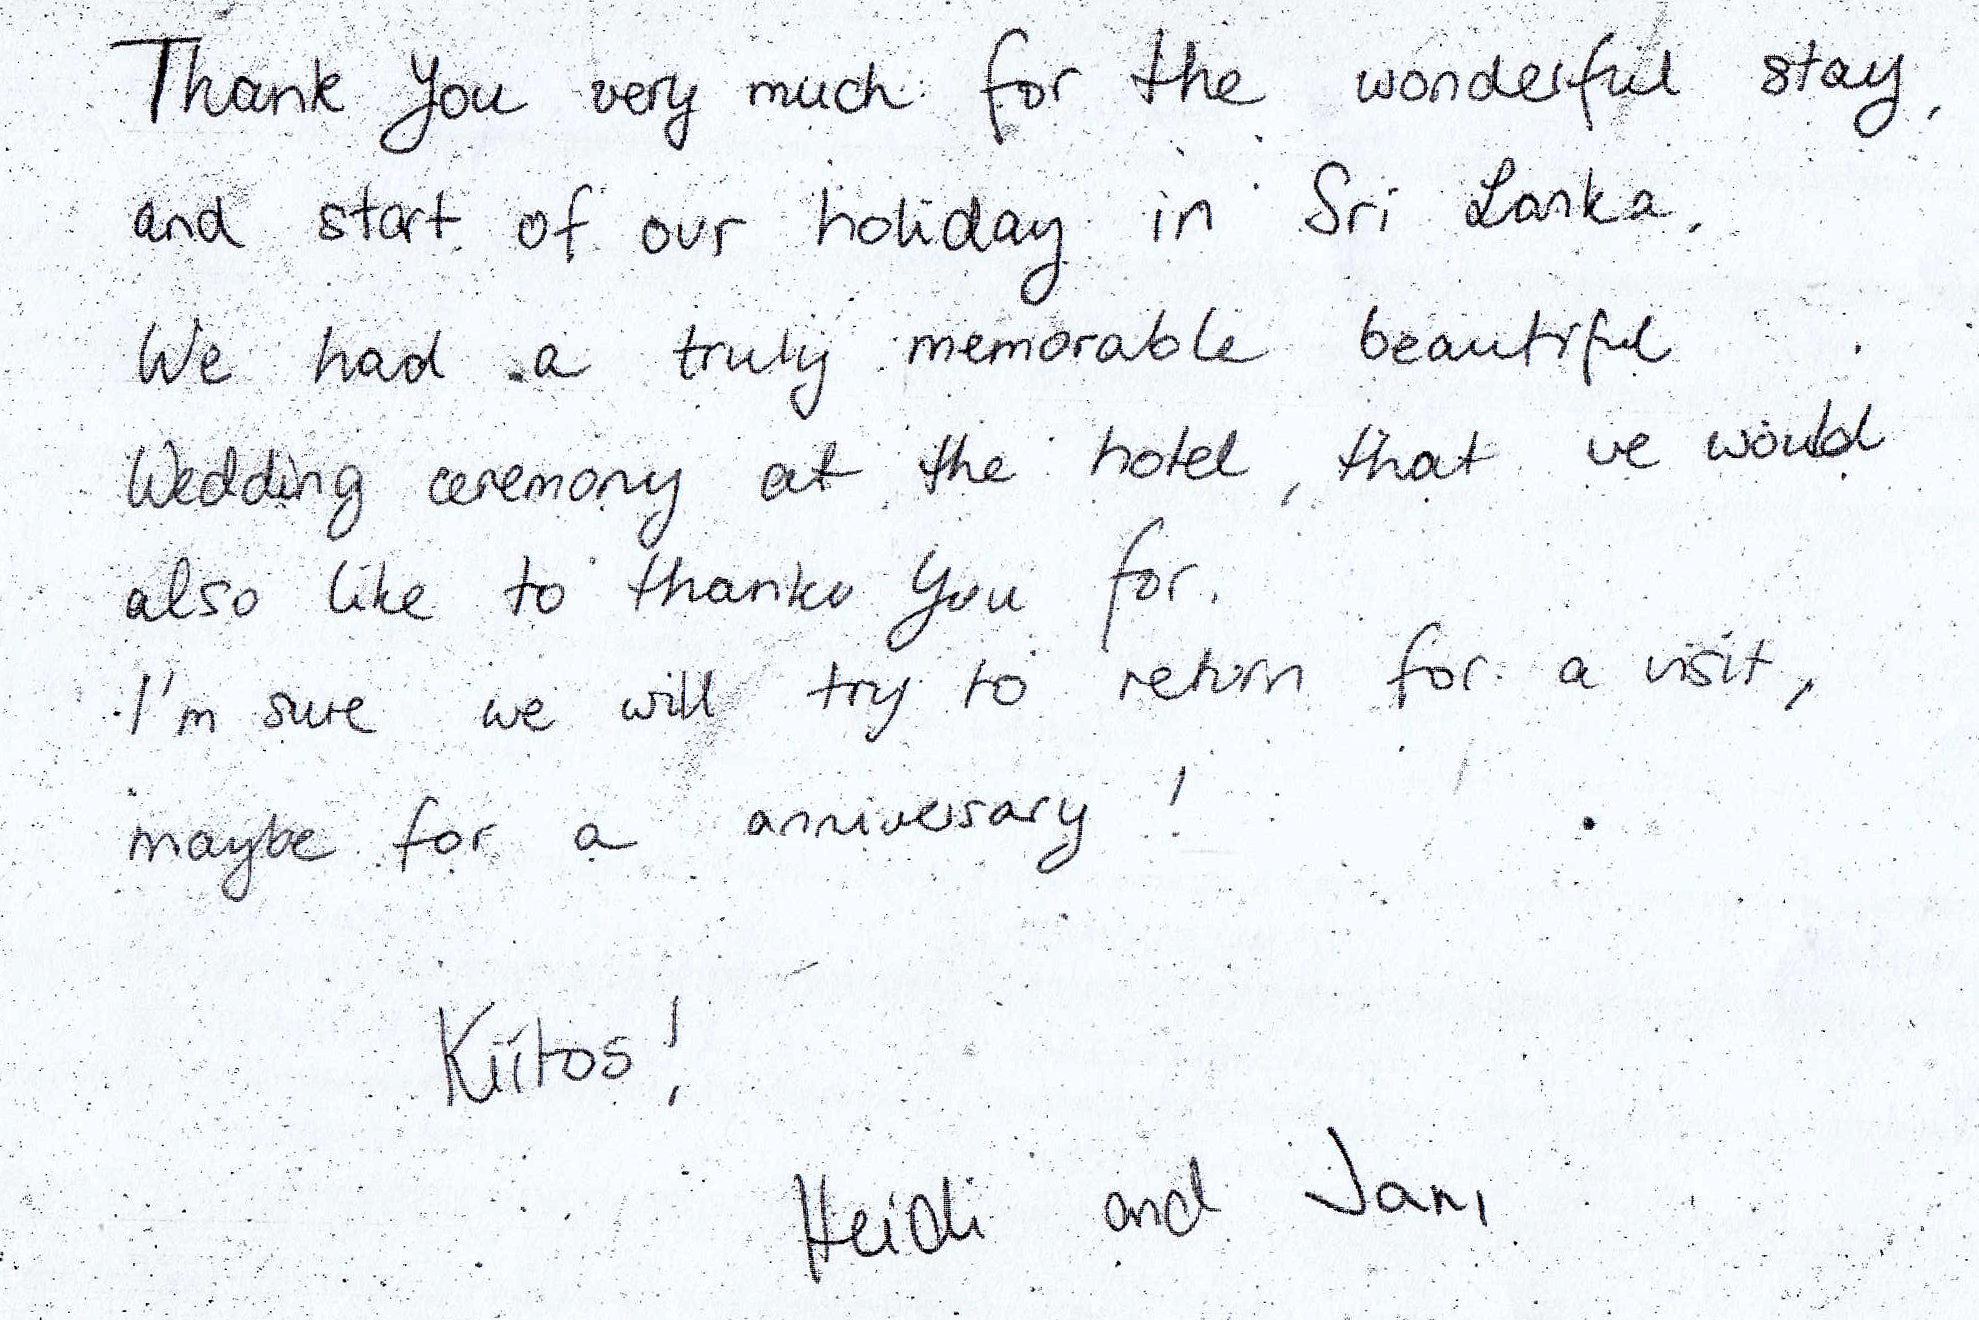 Thank You very much for the wonderful stay,
and start of our holiday in Sri Lanka.
We had a truly memorable beautiful
Wedding ceremony at the hotel, that we would
also like to thank You for.
I'm sure we will try to return for a visit,
maybe for a anniversary!
Kiitos!
Heidi and Jani